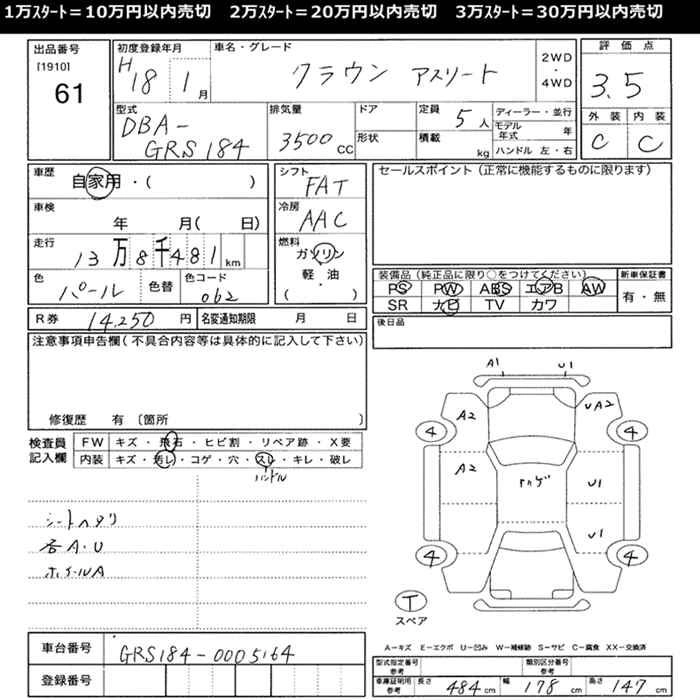 1万ｽﾀｰﾄ＝10万円以内売切　2万ｽﾀｰﾄ＝20万円以内売切　3万ｽﾀｰﾄ＝30万円以内売切
出品番号
[1910]
61
初度登録年月
H18 1月
車名・グレード
クラウン アスリート
2WD
・
4WD
評価点
3.5
外装 内装
C C
型式
DBA-
GRS184
排気量
3500cc
ドア
形状
定員
5人
積載
kg
ディーラー・並行
モデル年式 年
ハンドル 左・右
車歴
自家用・( )
車検
年 月( 日)
走行
13万8千481km
色
パール
色替
色コード
062
シフト
FAT
冷房
AAC
燃料
ガソリン
軽・油
( )
セールスポイント（正常に機能するものに限ります）
装備品（純正品に限り○をつけてください） 新車保証書
PS PW ABS エアB AW
SR ナビ TV カワ
有・無
後日品
R券 14,250円 名変通知期限 月 日
注意事項申告欄（不具合内容等は具体的に記入して下さい）
修復歴 有〔箇所 〕
検査員記入欄
FW キズ・飛石・ヒビ割・リペア跡・X要
内装 キズ・汚レ・コゲ・穴・スレ・キレ・破レ
ハンドル
シートヘタリ
各A・U
ホイールA
A1 U1
A2 UA2
4 4
A2
U1
U1
4 4
T
スペア
A－キズ E－エクボ U－凹み W－補修跡 S－サビ C－腐食 XX－交換済
車台番号 GRS184-0005164
登録番号
型式指定番号 参考
類別区分番号 参考
車庫証明用 参考 長さ 484cm 幅 178cm 高さ 147cm